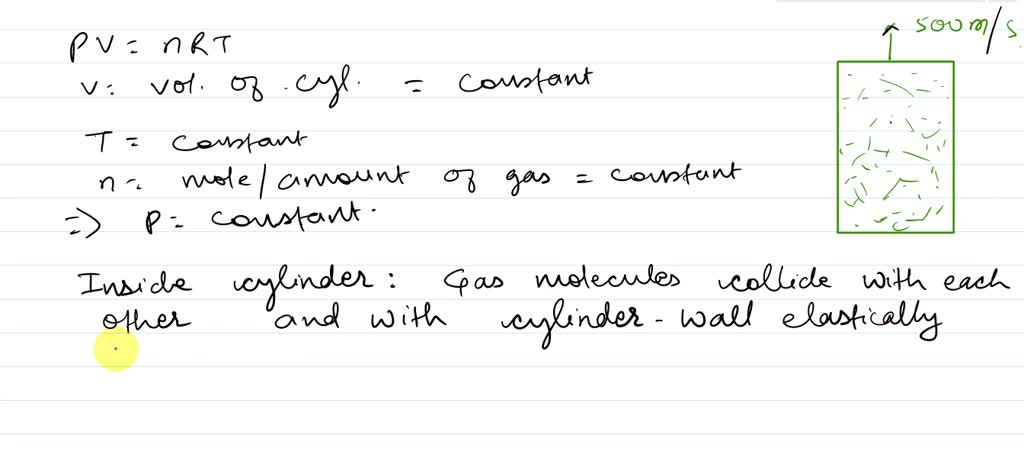 PV = nRT
500m/s
V: vol. of cyl. = constant
T = constant
n = mole/amount of gas = constant
=> P = constant.
Inside cylinder: Gas molecules collide with each
other and with cylinder-wall elastically